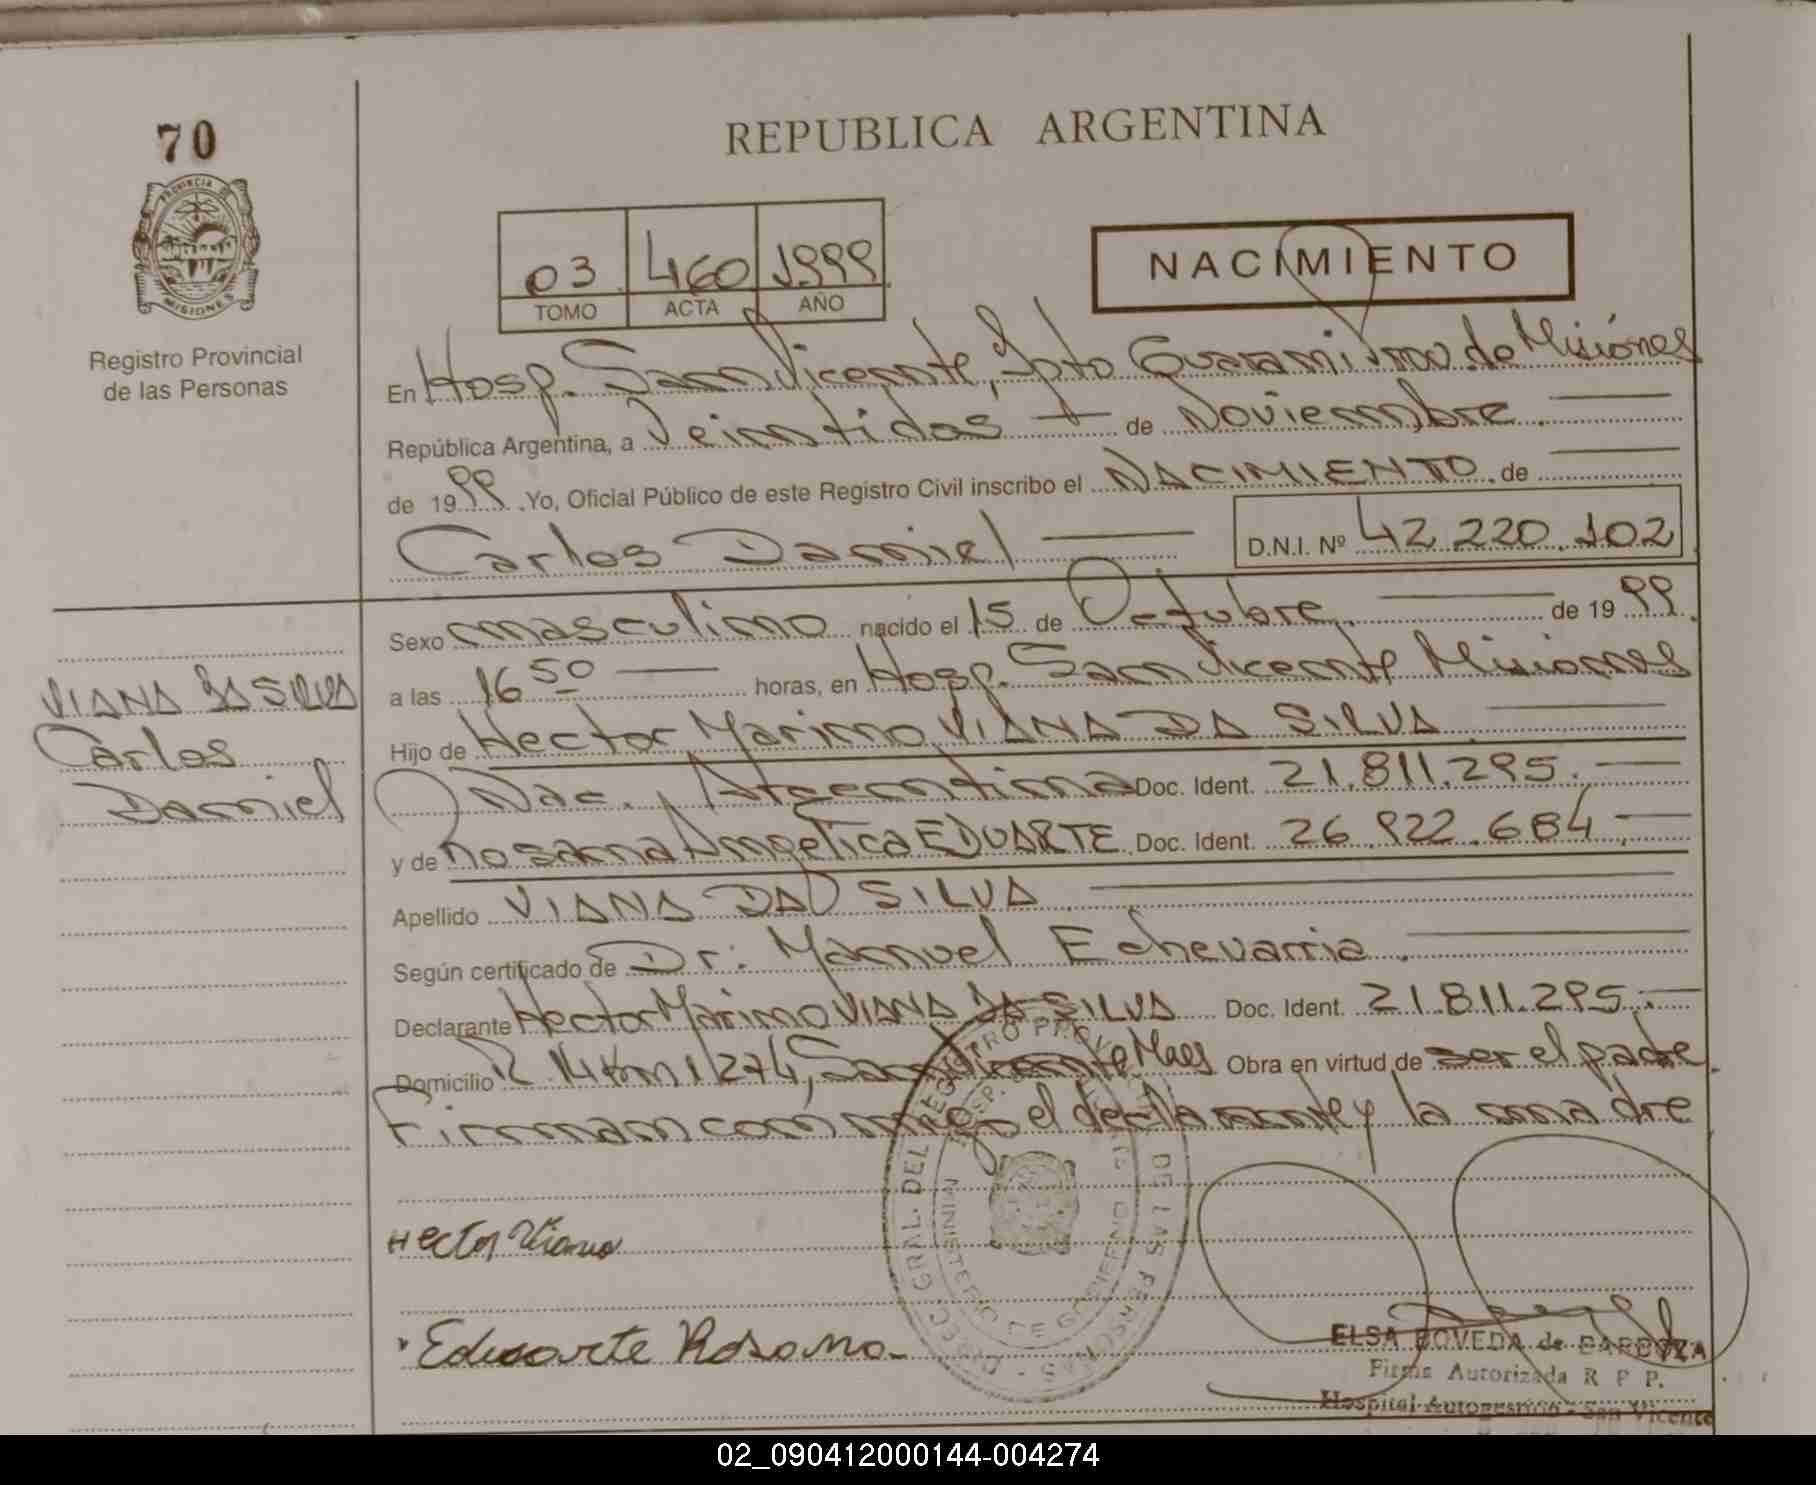 70
PROVINCIA DE
MISIONES
Registro Provincial
de las Personas
REPUBLICA ARGENTINA
03 460 1999
TOMO ACTA AÑO
NACIMIENTO
En Hosp. San Vicente, Dpto Guarani Prov. de Misiónes
República Argentina, a Veintidos de Noviembre.
de 1999. Yo, Oficial Público de este Registro Civil inscribo el NACIMIENTO de
Carlos Daniel
D.N.I. Nº 42.220.102
Sexo masculino nacido el 15 de Octubre. de 1999.
a las 16 50 horas, en Hosp. San Vicente Misiones
Hijo de Hector Marino VIANA DA SILVA
Nac. Argentina Doc. Ident. 21.811.295.
y de Rosana Angelica EDUARTE Doc. Ident. 26.922.684
Apellido VIANA DA SILVA
Según certificado de Dr: Manuel Echevarria.
Declarante Hector Marino VIANA DA SILVA Doc. Ident. 21.811.295.
Domicilio R 14 Km 1274, San Vicente Mnes Obra en virtud de ser el padre.
Firman conmigo el declarante y la madre
VIANA DA SILVA
Carlos
Daniel
Hector Viana
Eduarte Rosana
DIRECC. GRAL. DEL REGISTRO PROV. DE LAS PERSONAS
MINISTERIO DE GOBIERNO
ELSA BOVEDA de BARBOZA
Firma Autorizada R P P.
Hospital Autogestión - San Vicente
02_090412000144-004274